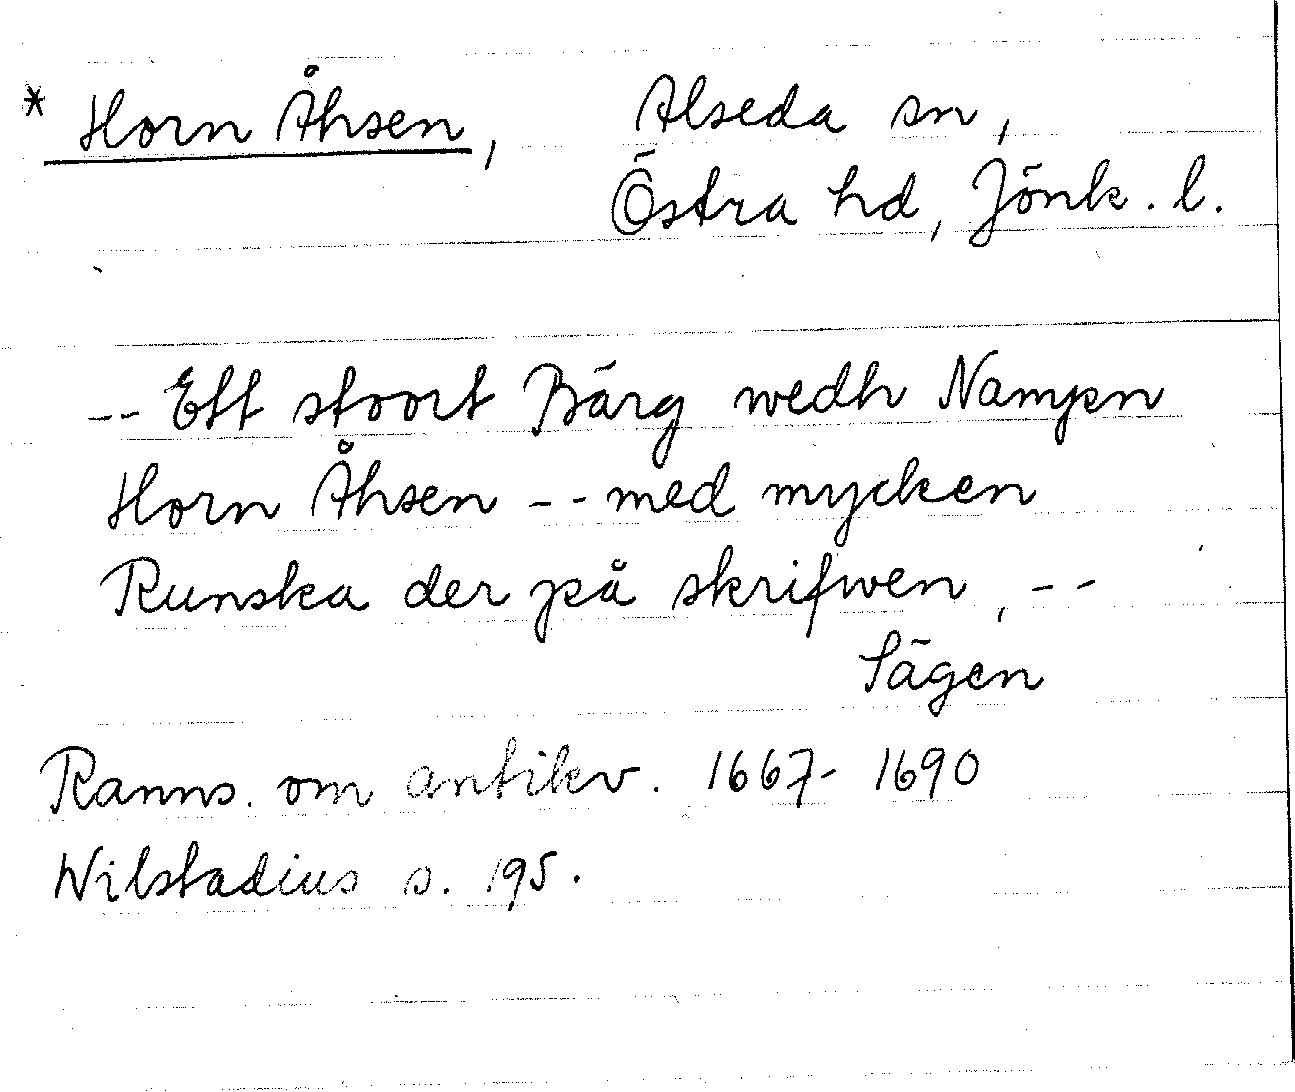 * Horn Åhsen, Alseda sn,
Östra hd, Jönk. l.
-- Ett stoort Bärg wedh Nampn
Horn Åhsen -- med mycken
Runska der på skrifwen, --
Sägen
Ranns. om antikv. 1667- 1690
Wilstadius s. 195.